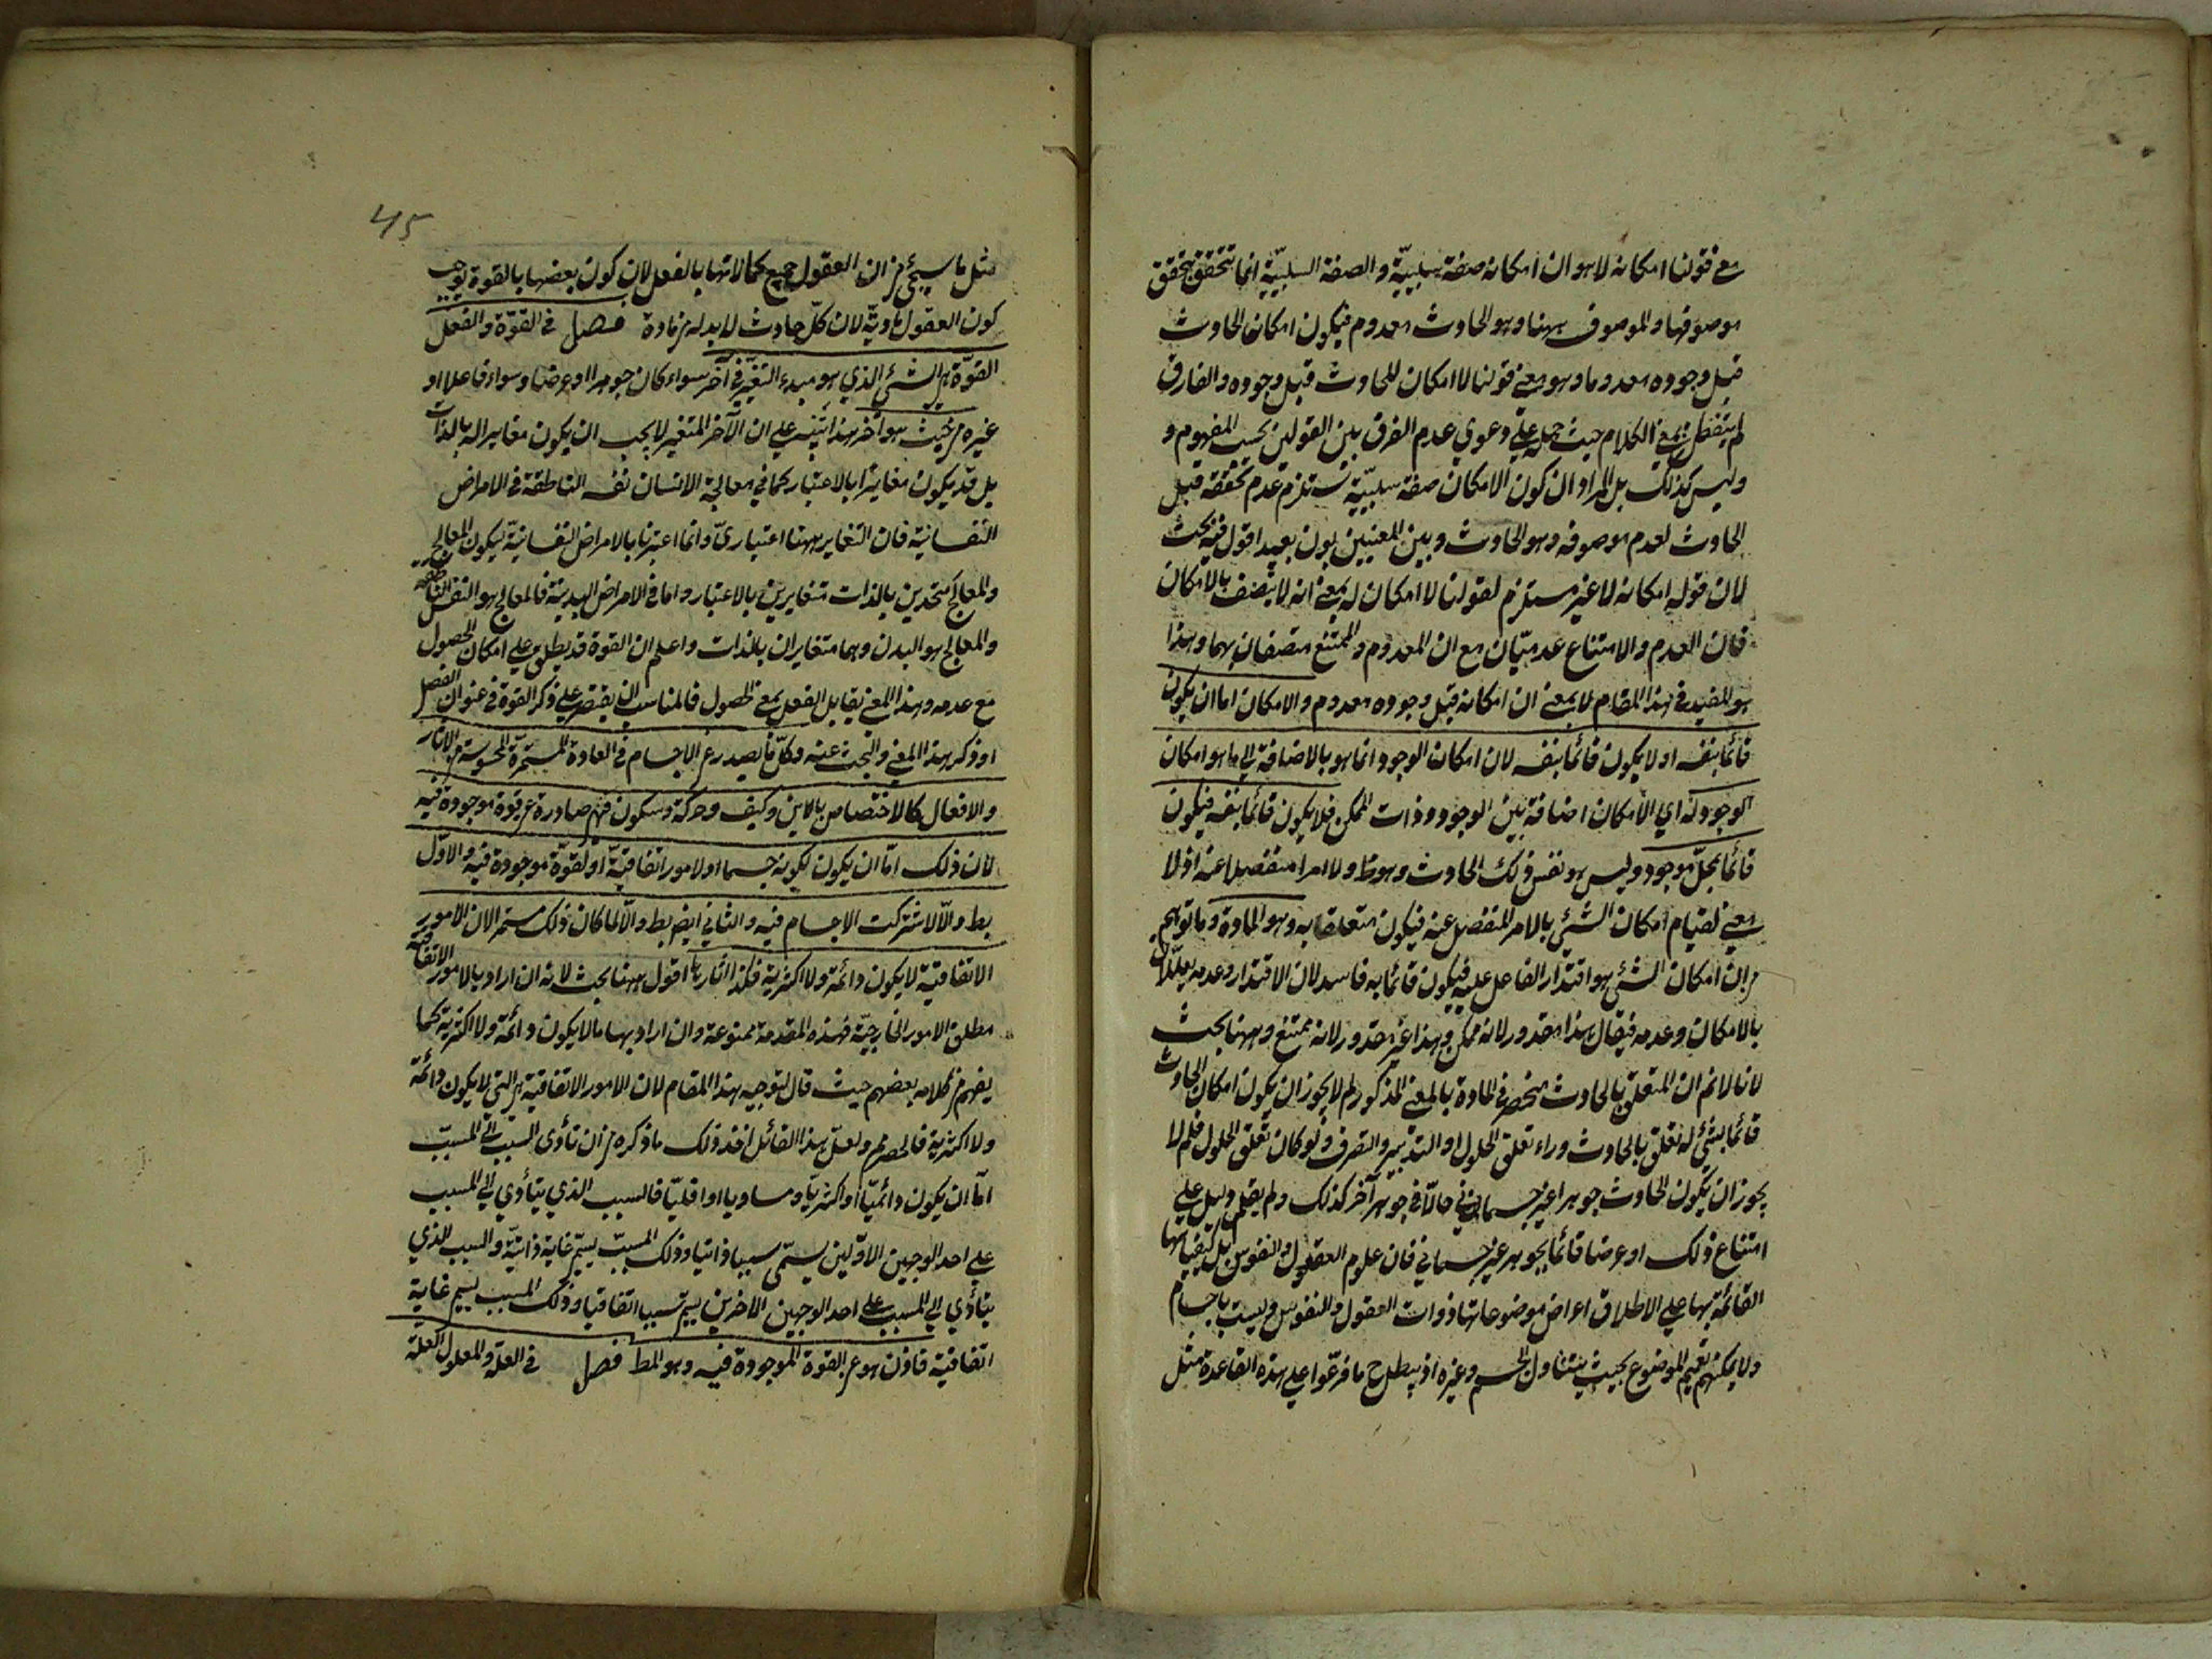 مع قولنا امكانه لا هو ان امكانه صفة سلبيّة والصفة السلبيّة انما تتحقق بتحقق
موصوفها والموصوف ههنا وهو الحادث معدوم فيكون امكان الحادث
قبل وجوده معدوما وهو معنى قولنا لا امكان للحادث قبل وجوده والفارق
لم يتفطن بمعنى الكلام حيث حمله على دعوى عدم الفرق بين القولين بحسب المفهوم و
وليس كذلك بل المراد ان كون الامكان صفة سلبيّة تستلزم عدم تحققه قبل
الحادث لعدم موصوفه وهو الحادث وبين المعنيين بون بعيد اقول فيه بحث
لان قوله امكانه لا غير مستلزم لقولنا لا امكان له بمعنى انه لا يتصف بالامكان
فان العدم والامتناع عدميّان مع ان المعدوم والممتنع متصفان بهما وهذا
هو المفيد في هذا المقام لا بمعنى ان امكانه قبل وجوده معدوم والامكان اما ان يكون
قائما بنفسه او لا يكون قائما بنفسه لان امكان الوجود انما هو بالاضافة الى ما هو امكان
الوجود له اي الامكان اضافة بين الوجود وذات الممكن فلا يكون قائما بنفسه فيكون
قائما بمحلّ موجود وليس هو نفس ذلك الحادث وهو ظ ولا امرا منفصلا عنه اذ لا
معنى لقيام امكان الشئ بالامر المنفصل عنه فيكون متعلقا به وهو المادة وما توهم
من ان امكان الشئ هو اقتدار الفاعل عليه فيكون قائما به فاسد لان الاقتدار وعدمه يعللان
بالامكان وعدمه فيقال هذا مقدور لانه ممكن وهذا غير مقدور لانه ممتنع وههنا بحث
لانا لا نم ان المتعلق بالحادث منحصر في المادة بالمعنى المذكور لم لا يجوز ان يكون امكان الحادث
قائما بشئ له تعلق بالحادث وراء تعلق الحلول او التدبير والتصرف ولو كان تعلق الحلول فلم لا
يجوز ان يكون الحادث جوهرا غير جسماني حالّا في جوهر آخر كذلك ولم يقم دليل على
امتناع ذلك او عرضا قائما بجوهر غير جسماني فان علوم العقول والنفوس بل كيفياتها
القائمة بها على الاطلاق اعراض موضوعاتها ذوات العقول والنفوس وليست باجسام
ولا يمكنهم تعميم الموضوع بحيث يتناول الجسم وغيره اذ يبطل ح ما فرّعوا على هذه القاعدة مثل
415
مثل ما سيجئ من ان العقول جميع كمالاتها بالفعل لان كون بعضها بالقوة يوجب
كون العقول ماديّة لان كلّ حادث لا بد له من مادة فصل في القوّة والفعل
القوّة هي الشئ الذي هو مبدء التغيّر في آخر سواء كان جوهرا او عرضا وسواء فاعلا او
غيره من حيث هو آخر هذا تنبيه على ان الآخر المتغير لا يجب ان يكون مغايرا له بالذات
بل قد يكون مغايرا بالاعتبار كما في معالجة الانسان نفسه الناطقة في الامراض
النفسانيّة فان التغاير ههنا اعتباريّ وانما اعتبرنا بالامراض النفسانيّة ليكون المعالج
والمعالج متحدين بالذات متغايرين بالاعتبار واما في الامراض البدنية فالمعالج هو النفس الناطقه
والمعالج هو البدن وهما متغايران بالذات واعلم ان القوة قد يطلق على امكان الحصول
مع عدمه وهذا المعنى يقابل الفعل بمعنى الحصول فالمناسب ان يقتصر على ذكر القوة في عنوان الفصل
او ذكر هذا المعنى والبحث عنه وكلّ ما يصدر عن الاجسام في العادة المستمرّة المحسوسة من الاثار
والافعال كالاختصاص بالاين وكيف وحركة وسكون فهي صادرة عن قوة موجودة فيه
لان ذلك امّا ان يكون لكونه جسما او لامور اتفاقيّة او لقوّة موجودة فيه والاوّل
بط والّا لاشتركت الاجسام فيه والثاني ايضا بط والّا لما كان ذلك مستمرا لان الامور
الاتفاقية لا يكون دائمة ولا اكثرية فكذا آثارها اقول ههنا بحث لانه ان اراد بالامور الاتفاقيه
مطلق الامور الخارجيّة فهذه المقدمة ممنوعة وان اراد بها ما لا يكون دائمة ولا اكثرية كما
يفهم من كلام بعضهم حيث قال لتوجيه هذا المقام لان الامور الاتفاقية هي التي لا يكون دائمة
ولا اكثرية فالحصر مم ولعلّ هذا القائل اخذ ذلك ما ذكره من ان تأدى السبب الى المسبّب
امّا ان يكون دائميّا او اكثريّا او مساويا او اقليّا فالسبب الذي يتأدي الى المسبب
على احد الوجهين الاوّلين يسمّى سببا ذاتيا وذلك المسبّب يسمى غاية ذاتيّة والسبب الذي
يتأدي الى المسبب على احد الوجهين الاخرين يسمى سببا اتفاقيا وذلك المسبب يسمى غاية
اتفاقية فاذن هو عن القوة الموجودة فيه وهو المط فصل في العلة والمعلول العلة